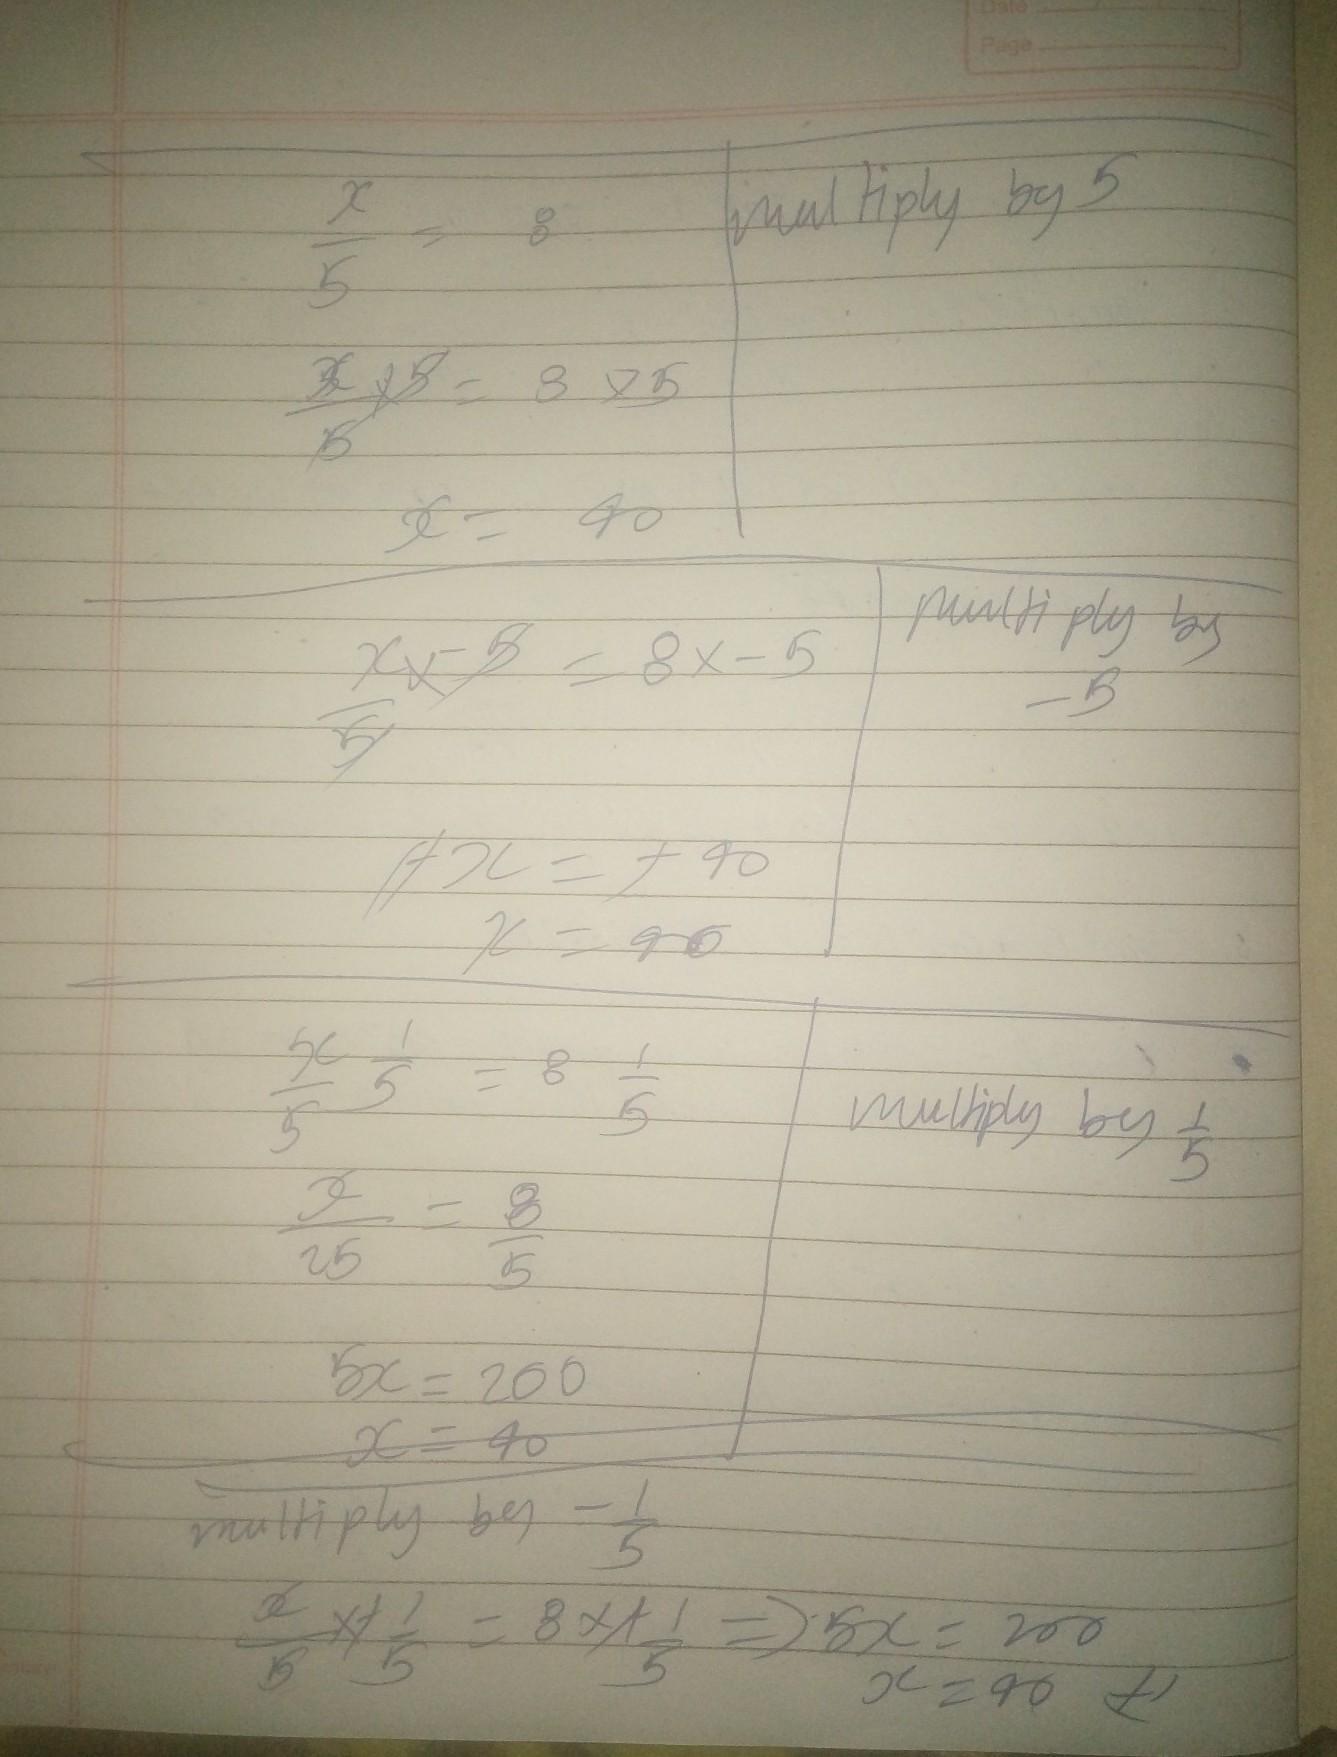 Date
Page
x/5 = 8
multiply by 5
x/5 × 5 = 8 × 5
x = 40
x/5 × -5 = 8 × -5
multiply by
-5
-x = -40
x = 40
x/5 1/5 = 8 1/5
multiply by 1/5
x/25 = 8/5
5x = 200
x = 40
multiply by -1/5
x/5 × -1/5 = 8 × -1/5 => 5x = 200
x = 40